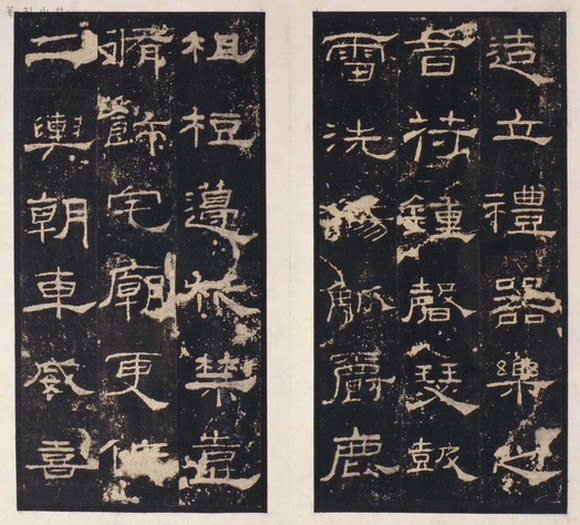 造立禮器樂之
音苻鍾磬瑟鼓
雷洗觴觚爵鹿
柤梪籩柉禁壺
脩飾宅廟更作
二輿朝車威熹